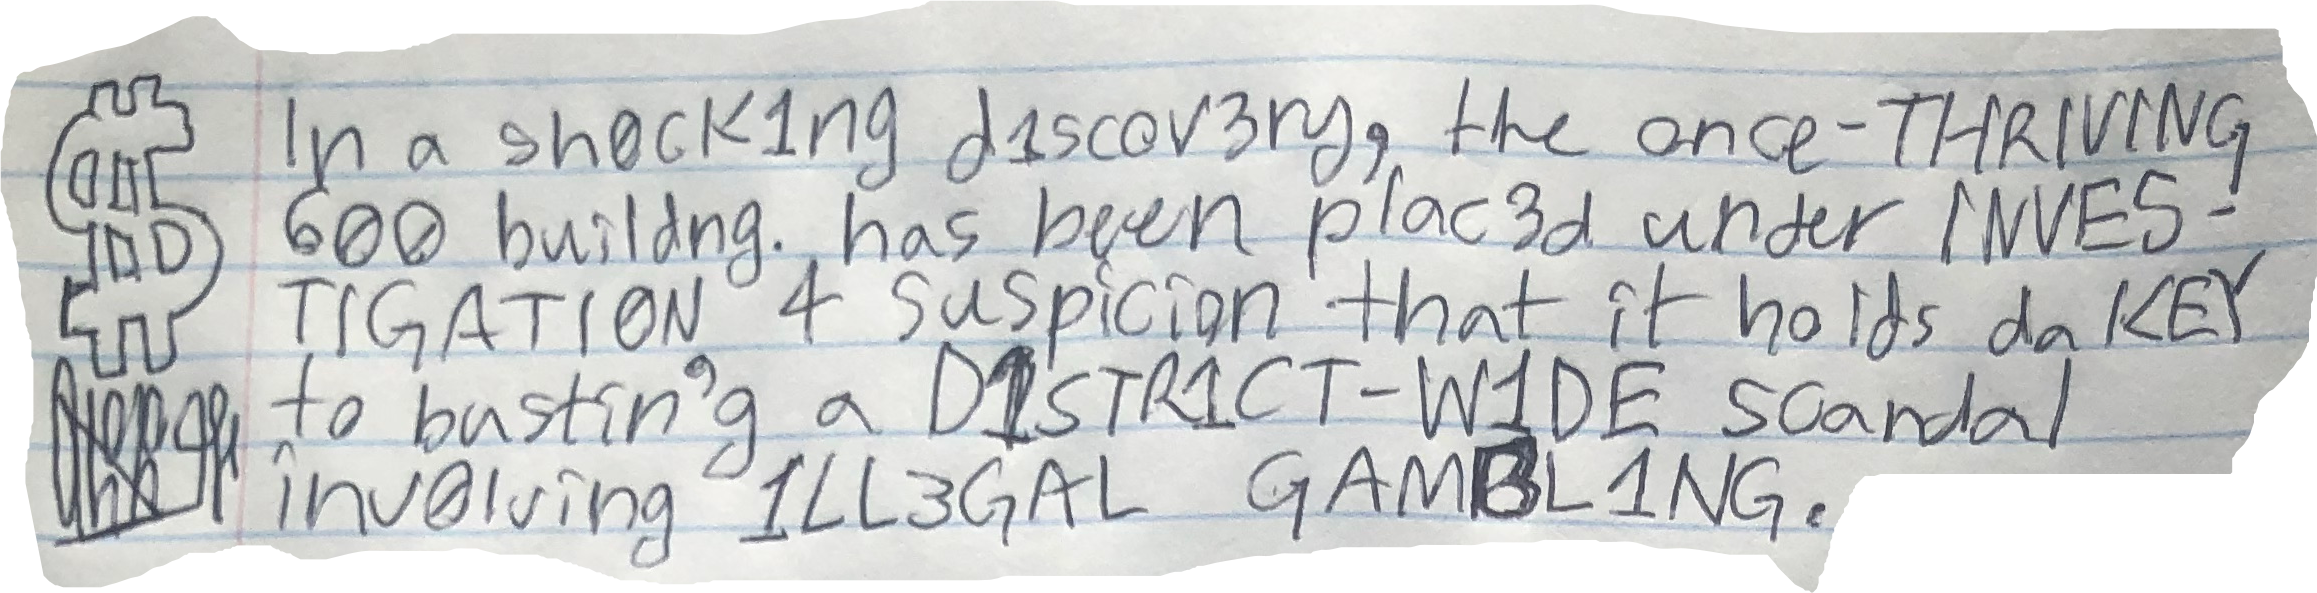 In a sh0ck1ng d1scov3ry, the once-THRIVING
600 buildng. has been plac3d under INVES-
TIGATI0N 4 suspicion that it holds da KEY
to bustin'g a D1STR1CT-W1DE scandal
inv0lving 1LL3GAL GAMBL1NG.